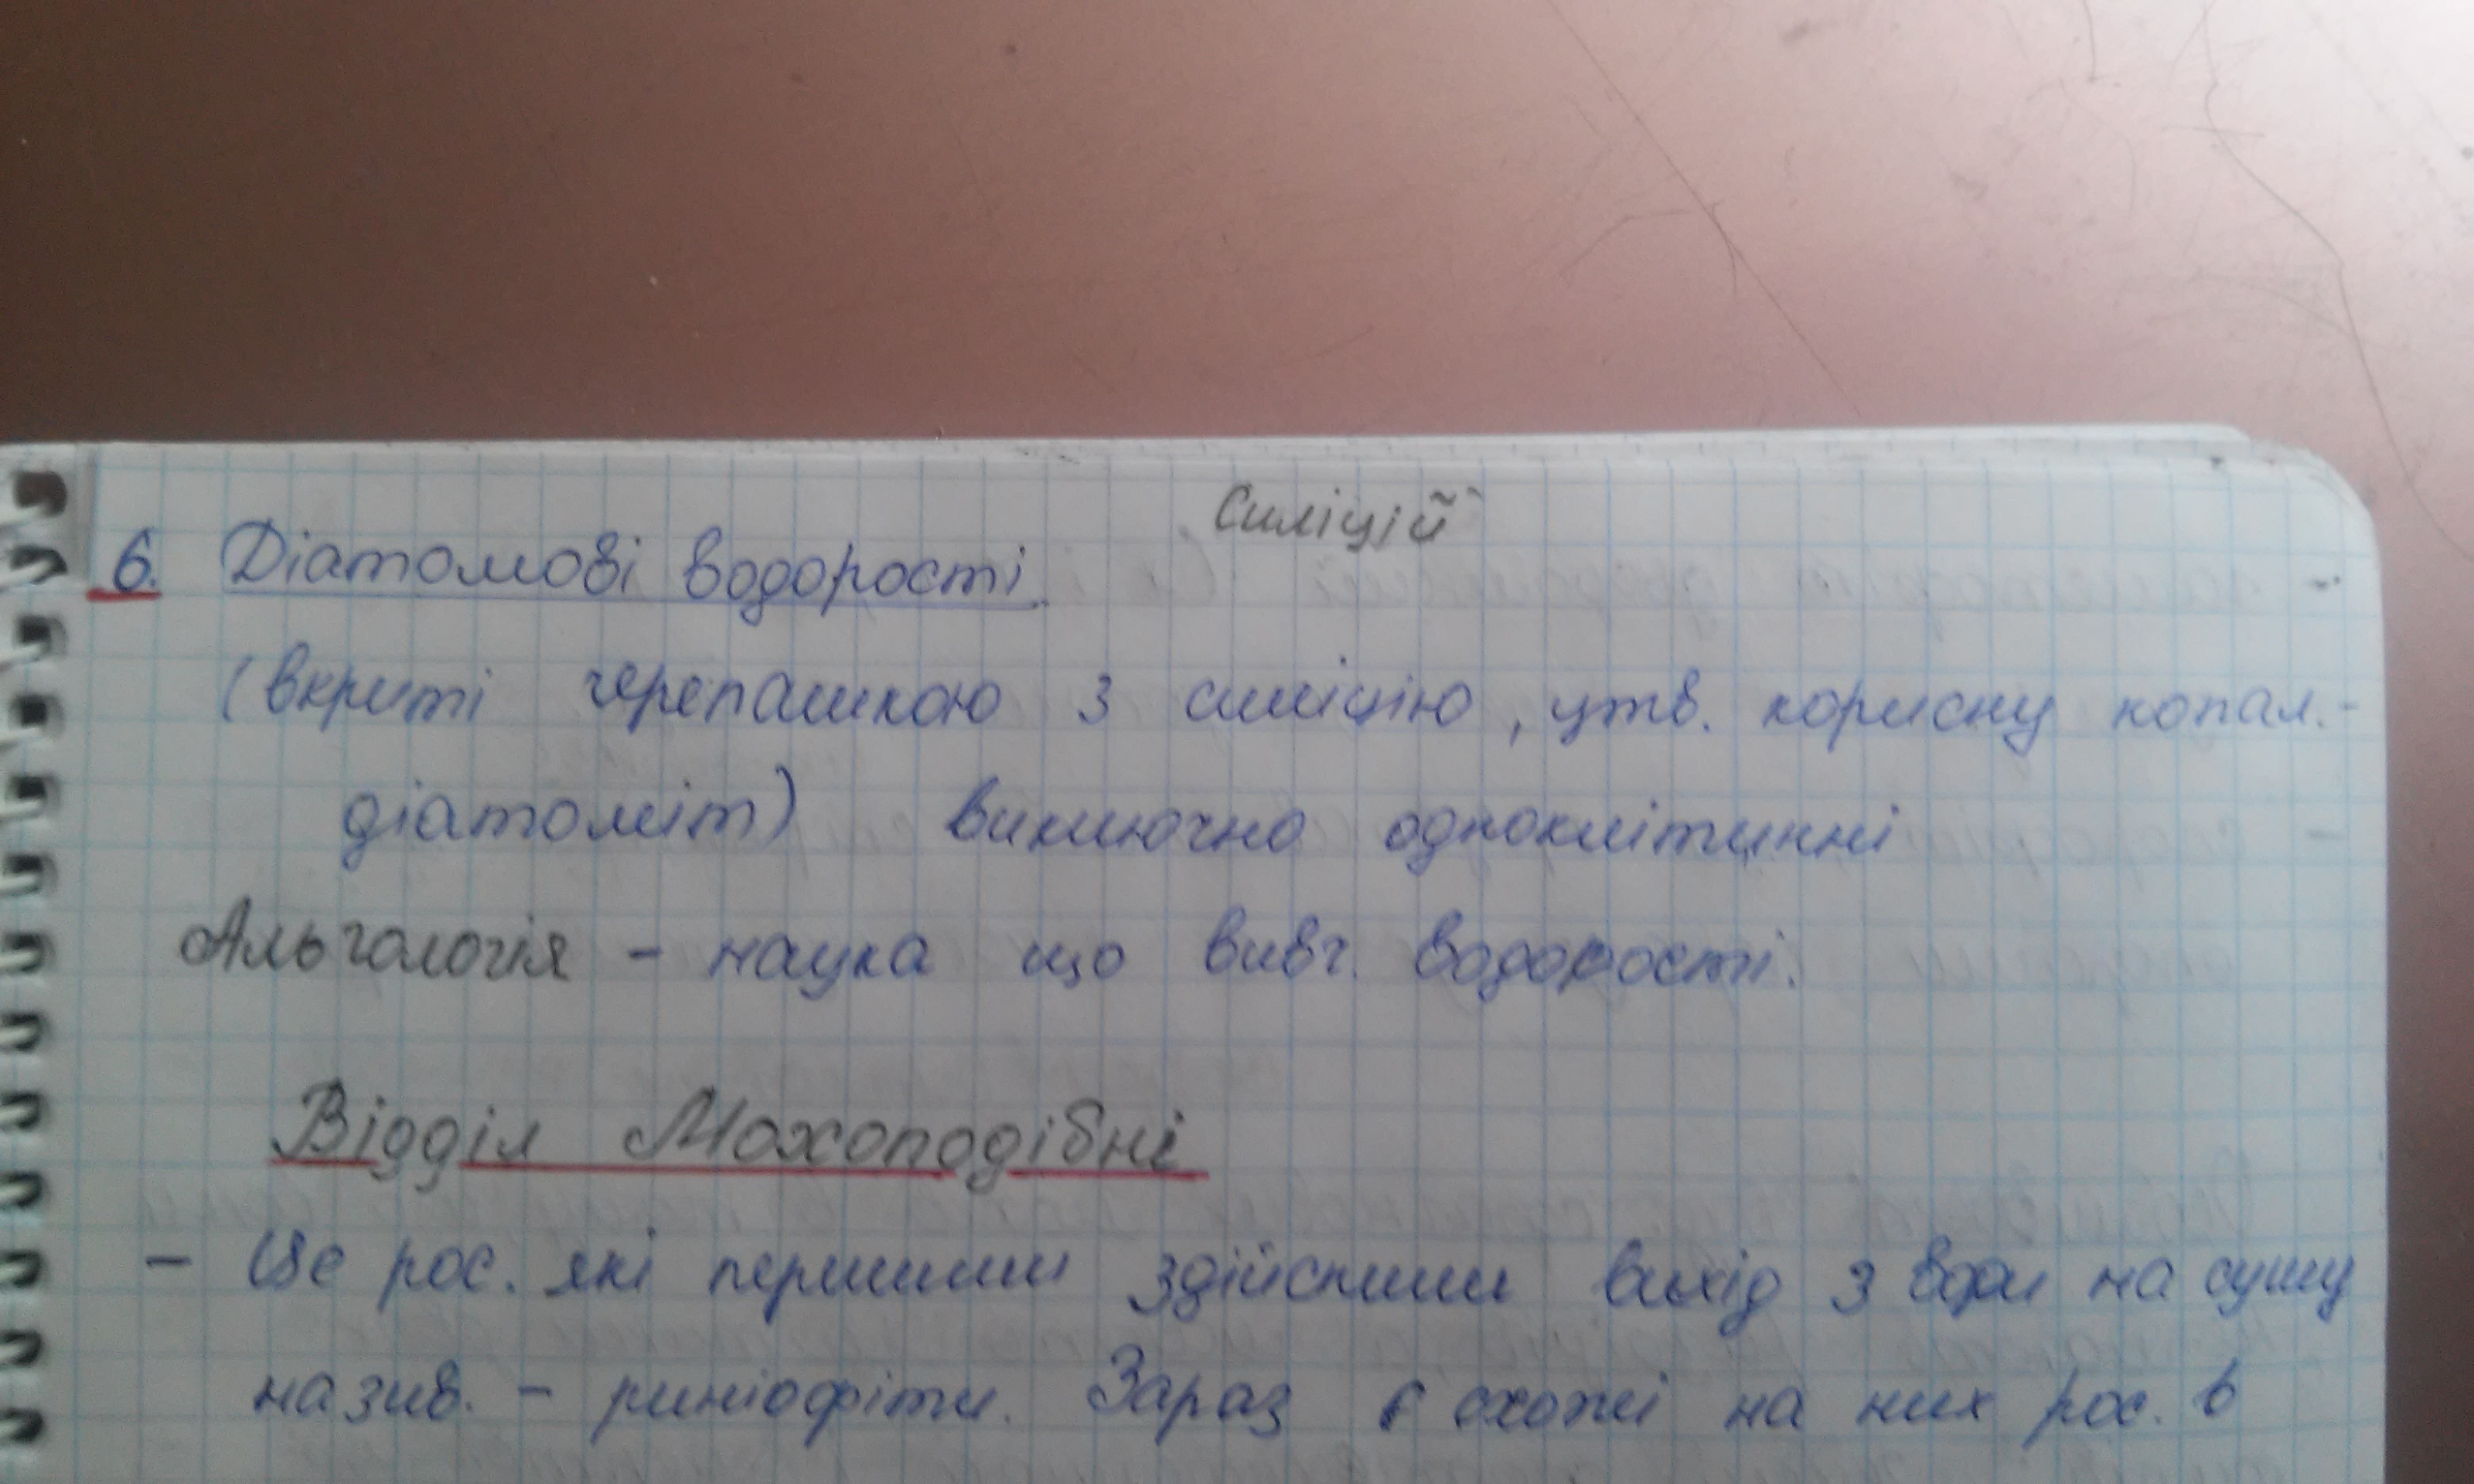 Силіцій
6. Діатомові водорості.
(вкриті черепашкою з силіцію, утв. корисну копал.-
діатоміт) виключно одноклітинні
Альгологія - наука що вивч. водорості.
Відділ Мохоподібні
- Це рос. які першими здійснили вихід з води на сушу
назив. - риніофіти. Зараз є схожі на них рос. в